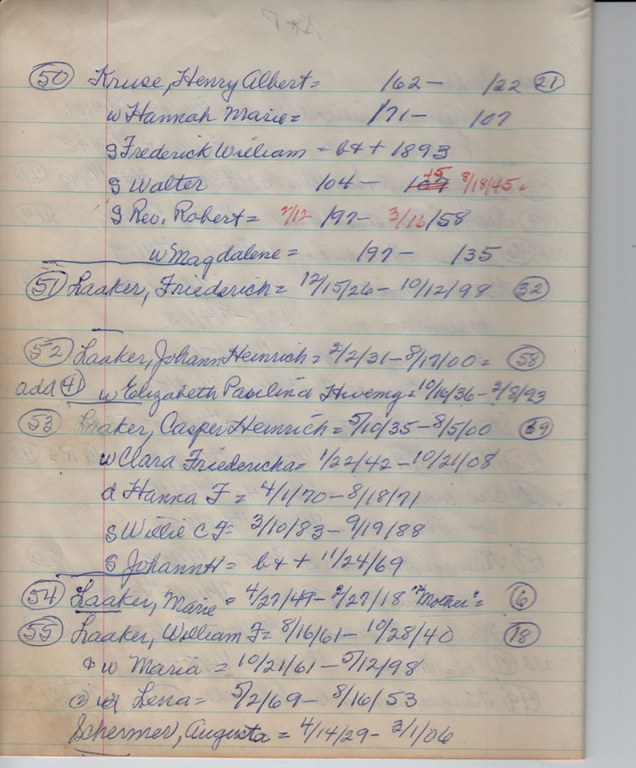 50 Kruse, Henry Albert = /62 – /22 21
w Hannah Marie = /71 – 107
S Frederick William – b & + 1893
S Walter 104 – 45 8/18/45
S Rev. Robert = /97 – /58
w Magdalene = /97 – /35
51 Laaker, Friederich = 12/15/26 – 10/12/98 32
52 Laaker, Johann Heinrich = 2/2/31 – 8/17/00 = 58
add 41 w Elizabeth Paulina = 10/16/36 – 2/8/93
53 Laaker, Casper Heinrich = 5/10/35 – 8/5/00 39
w Clara Friedericka = 1/22/42 – 10/21/08
d Hanna F = 4/1/70 – 8/18/71
S Willie C F = 3/10/83 – 9/19/88
S Johann H = b & + 11/24/69
54 Laaker, Marie = 4/27/49 – /27/18 "Mother" = 6
55 Laaker, William F = 8/16/61 – 10/28/40 18
& w Maria = 10/21/61 – 5/12/98
w Lena = 5/2/69 – 8/16/53
Schermer, Augusta = 4/14/29 – 3/1/06